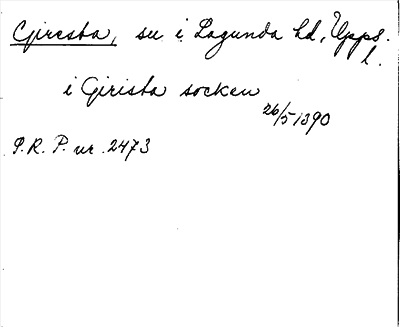 Giresta, su i Lagunda hd, Upps.
l.
i Girista socken
26/5 1390
S.R.P. nr. 2473